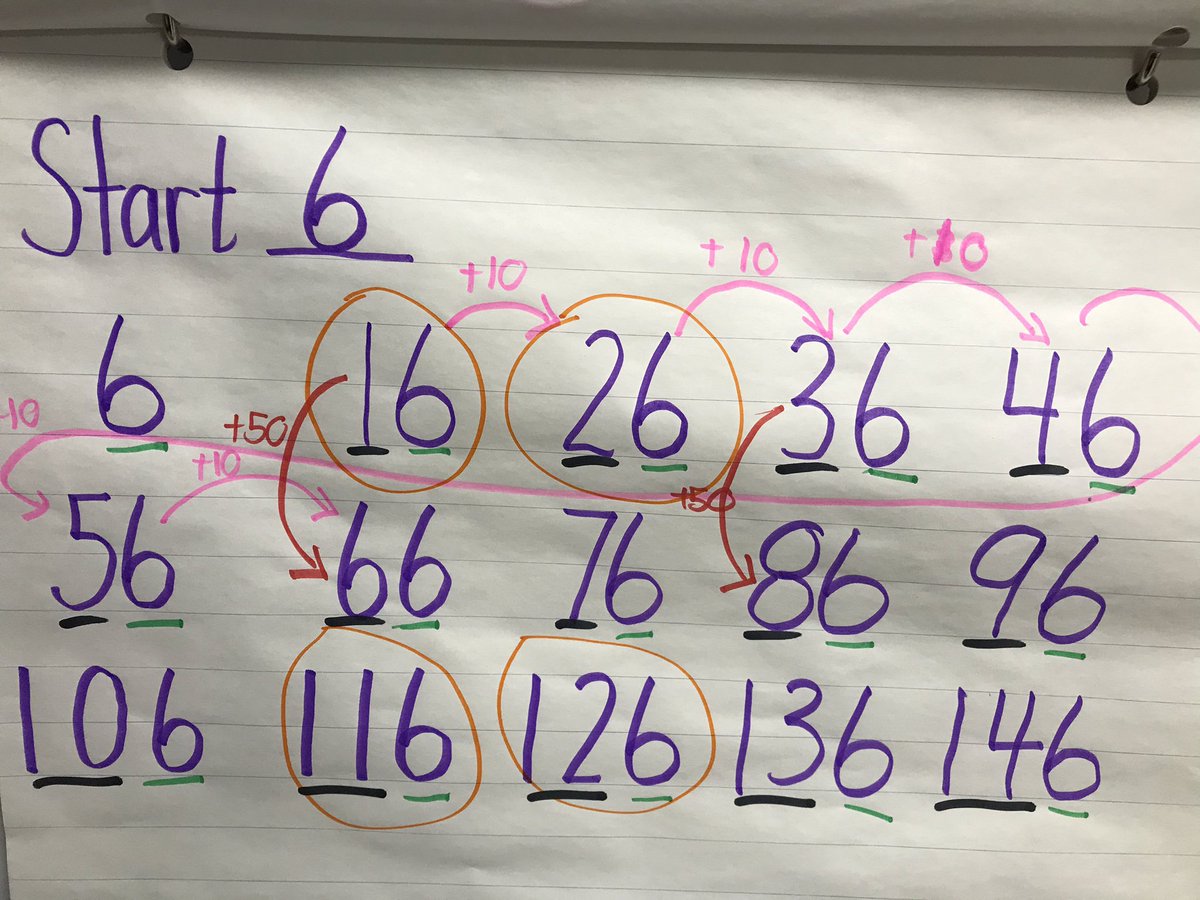 Start 6
+10 +10 +10
6 16 26 36 46
10 +50 +10 +50
56 66 76 86 96
106 116 126 136 146